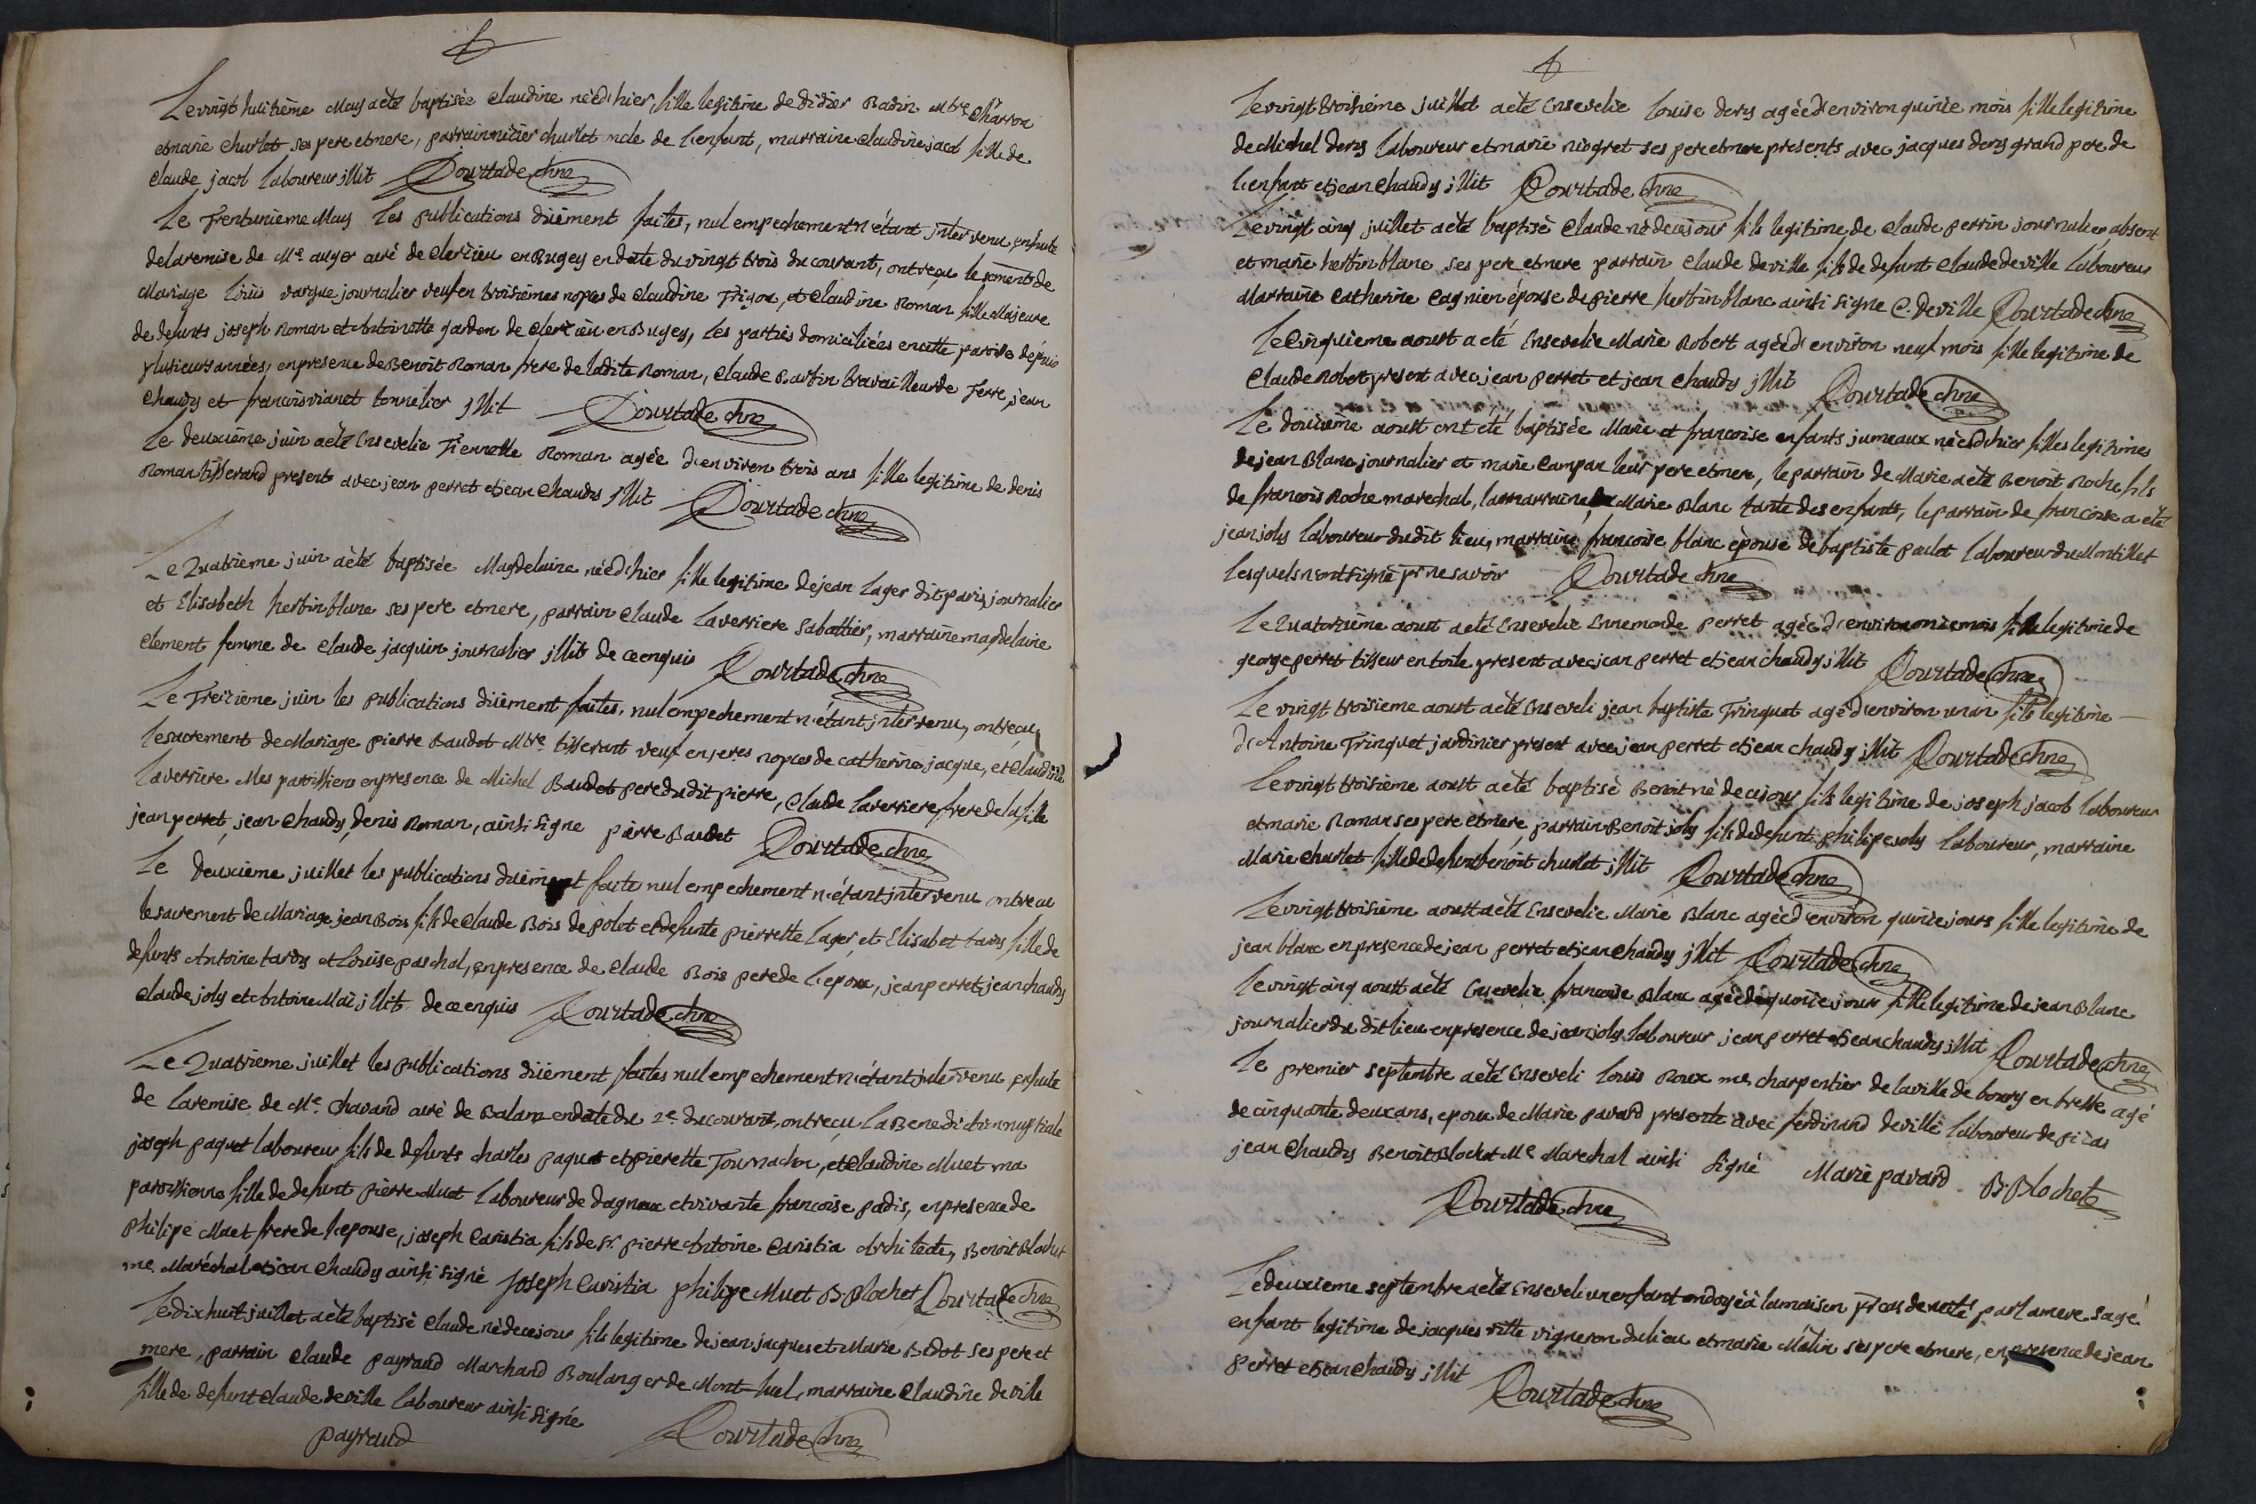 Le vingt huitième May a été baptisée Claudine née d'hier fille legitime de didier Badin Mtre Charron
et marie Charlet ses pere et mere, parrain charlet oncle de l'enfant, marraine Claudine jacob fille de
Claude jacob laboureur illit Courtade chne
Le Trentunieme May les publications düement faites, nul empechement n'étant intervenu, ensuite
de la remise de Mr. auger curé de en Bugey en date du vingt trois du courant, ont reçu le sacrement de
Mariage vargue journalier veuf en troisièmes noces de Claudine et Claudine Roman fille Majeure
de defunts joseph Roman et Antoinette de en Bugey, les parties domiciliées en cette paroisse depuis
plusieurs années, en presence de Benoit Roman frere de ladite Roman, Claude travailleur de Terre, jean
Chaudy et francois vianet tonnelier illit Courtade chne
Le deuxième juin a été Ensevelie Tiennette Roman agée d'environ trois ans fille legitime de denis
Roman tisserand present avec jean perret et jean Chaudy illit Courtade chne
Le Quatrieme juin a été baptisée Magdelaine née d'hier fille legitime de jean Lager dit paris, journalier
et Elisabeth herbin blanc ses pere et mere, parrain Claude Laverriere Sabottier, marraine magdelaine
Clement femme de Claude jacquin journalier illit de ce enquis Courtade chne
Le Treizième juin les publications düement faites, nul empechement n'étant intervenu, ont reçu
le sacrement de Mariage pierre Baudet Mtre tisserant veuf en noces de catherine jacque, et Claudine
Laverriere Mes paroissiens en presence de Michel Baudet pere du dit pierre, Claude Laverriere frere de la fille
jean perret, jean Chaudy, denis Roman, ainsi Signe pierre Baudet Courtade chne
Le deuxième juillet les publications düement faite nul empechement n'étant intervenu ont reçu
le sacrement de Mariage jean Bois fils de Claude Bois de et defunte pierrette Lager et Elisabet tardy fille de
defunts Antoine tardy et Louise paschal, en presence de Claude Bois pere de l'epoux, jean perret, jean chaudy
Claude joly et Antoine illit de ce enquis Courtade chne
Le Quatrieme juillet les publications düement faites nul empechement n'étant intervenu ensuite
de la remise de Mre. Chavand curé de Balan en date du 2e du courant, ont reçu la Benediction nuptiale
joseph paquet laboureur fils de defunts charles paquet et pierette Tournachon, et Claudine Muet ma
paroissienne fille de defunt pierre Muet laboureur de dagneux et vivante francoise padis, en presence de
philipe Muet frere de l'epouse, joseph Caristia fils de Sr. pierre Antoine Caristia Architecte, Benoit Blochet
me. Maréchal et jean chaudy ainsi signé joseph Caristia philipe Muet B Blochet Courtade chne
Le dix huit juillet a été baptisé Claude né de ce jour fils legitime de jean jacques et Marie Bidot ses pere et
mere, parrain Claude payraud Marchand Boulanger de Mont-luel, marraine Claudine deville
fille de defunt Claude deville laboureur ainsi Signée
payraud Courtade chne
Le vingt troisième juillet a été Ensevelie Louise dery agée d'environ quinze mois fille legitime
de Michel dery laboureur et marie niogret ses pere et mere presents avec jacques dery grand pere de
l'enfant et jean Chaudy illit Courtade chne
Le vingt cinq juillet a été baptisé Claude né de ce jour fils legitime de Claude perrin journalier absent
et marie herbin blanc ses pere et mere parrain Claude deville fils de defunt Claude deville laboureur
Marraine Catherine Cagnien épouse de pierre herbin blanc ainsi signe C. deville Courtade chne
Le Cinquieme aoust a été Ensevelie Marie Robert agée d'environ neuf mois fille legitime de
Claude Robert present avec jean perret et jean Chaudy illit Courtade chne
Le douzième aoust ont été baptisée Marie et francoise enfants jumeaux née d'hier filles legitimes
de jean Blanc journalier et marie Campan leur pere et mere, le parrain de Marie a été Benoit Roche fils
de francois Roche marechal, la marraine Marie Blanc tante des enfants, le parrain de francoise a été
jean joly laboureur du dit lieu, marraine francoise blanc épouse de baptiste paclet laboureur du Montillet
lesquels n'ont signé pr ne savoir Courtade chne
Le Quatorzième aoust a été Ensevelie Ennemonde perret agée d'environ onze mois fille legitime de
george perret tisseur en toile present avec jean perret et jean chaudy illit Courtade chne
Le vingt troisieme aoust a été Enseveli jean baptiste Trinquet agé d'environ un an fils legitime
d'Antoine Trinquet, jardinier present avec jean perret et jean chaudy illit Courtade chne
Le vingt troisième aoust a été baptisé Benoit né de ce jour fils legitime de joseph jacob laboureur
et marie Roman ses pere et mere parrain Benoit joly fils de defunt philipe joly laboureur, marraine
Marie Charlet fille de defunt benoit charlet illit Courtade chne
Le vingt troisième aoust a été Ensevelie Marie Blanc agée d'environ quinze jours fille legitime de
jean blanc en presence de jean perret et jean Chaudy illit Courtade chne
Le vingt cinq aoust a été Ensevelie francoise Blanc agée de quinze jours fille legitime de jean Blanc
journalier du dit lieu en presence de jean joly laboureur jean perret et jean chaudy illit Courtade chne
Le premier septembre a été Enseveli Louis Roux me charpentier de la ville de bourg en bresse agé
de cinquante deux ans, epoux de Marie pavard presente avec ferdinand deville laboureur de
jean Chaudy Benoit Blochet Me Marechal ainsi Signé Marie pavard B. Blochet
Courtade chne
Le deuxieme septembre a été Enseveli un enfant ondoyé à la maison pr cas de necté par la mere sage
enfant legitime de jacques vigneron du lieu et marie ses pere et mere, en presence de jean
perret et jean Chaudy illit Courtade chne